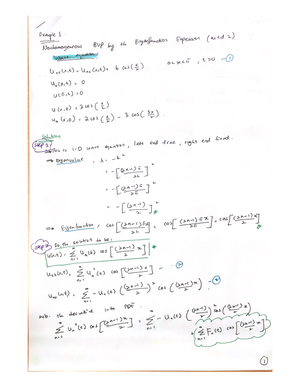 Example 1 :
Nonhomogeneous BVP by the Eigenfunction Expansion
Wave equation
Utt(x,t) = Uxx(x,t) + 6 cos(x/2) 0<x<π , t>0 — ①
Ux(0,t) = 0
U(π,t) = 0
U(x,0) = 2cos(x/2)
Ut(x,0) = 2cos(x/2) - 3cos(3x/2)
Solution
Step 1 This is 1-D wave equation, left end free, right end fixed.
⇒ Eigenvalue λ = -k²
= -[(2n-1)π/2L]²
= -[(2n-1)π/2π]²
= -[(2n-1)/2]²
⇒ Eigenfunction = cos[(2n-1)πx/2L] = cos[(2n-1)πx/2π] = cos[(2n-1)x/2]
Step 2 So, the solution to be :
U(x,t) = Σ n=1 ∞ Un(t) cos[(2n-1)x/2]
Utt(x,t) = Σ n=1 ∞ Un''(t) cos[(2n-1)x/2] — ②
Uxx(x,t) = Σ n=1 ∞ -Un(t) ((2n-1)/2)² cos((2n-1)x/2) — ③
the derivative into PDE
Σ n=1 ∞ Un''(t) cos[(2n-1)x/2] = Σ n=1 ∞ -Un(t) ((2n-1)/2)² cos((2n-1)x/2)
+ Σ n=1 ∞ Fn(t) cos[(2n-1)x/2]
①